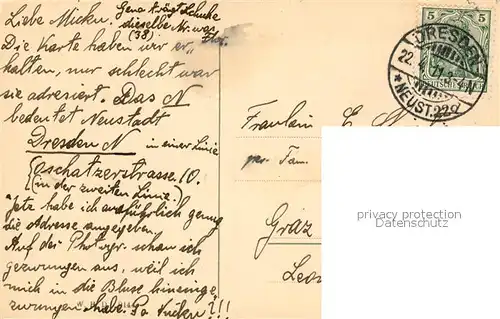 Gena trägt Schuhe
dieselbe Nr. was
(38)
Liebe Mickn.
Die Karte haben wir er-
halten, nur schlecht war
sie adresiert. Das N
bedeutet Neustadt
Dresden N in einer Linie
Oschatzerstrasse 10.
(in der zweiten Linie.)
Jetz habe ich ausführlich genug
die Adresse angegeben.
Auf der Photogr. schau ich
gezwungen aus, weil ich
mich in die Bluse hineinge-
zwungen habe. Pa !!!
W. H. D.
5 5
DRESDEN
22.
NEUST. 22
Fräulein E
per
Graz
Leo
privacy protection
Datenschutz